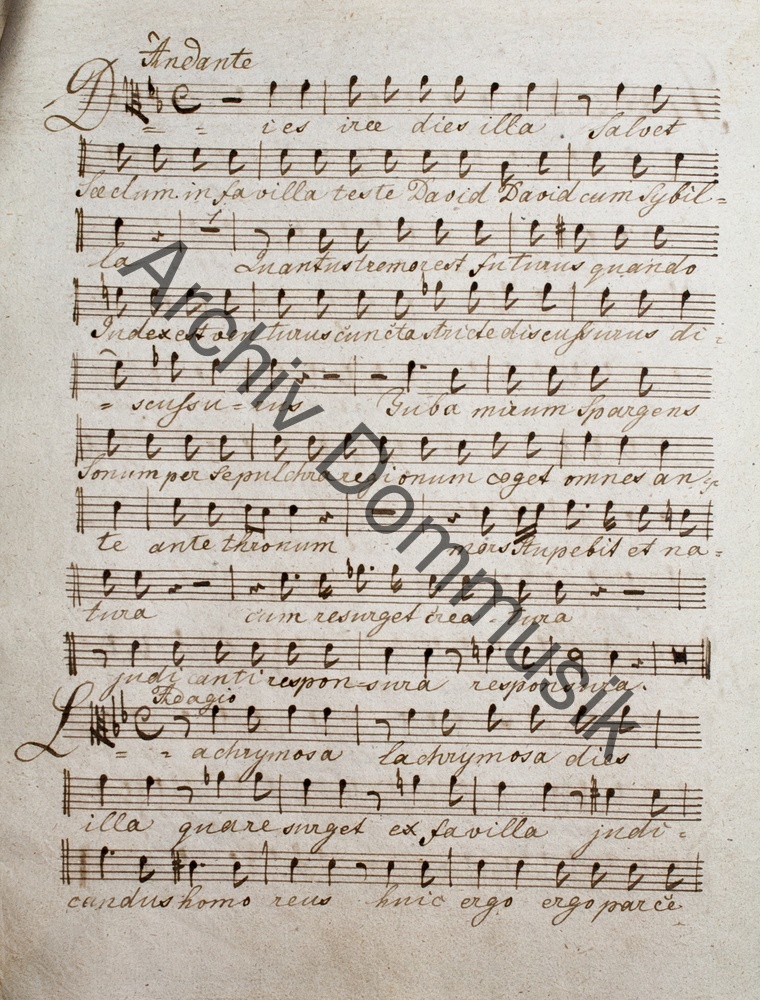 Andante
Dies iræ dies illa Salvet
Sæclum in favilla teste David David cum Sybil=
la Quantus tremor est futurus quando
Judex est venturus cuncta stricte discussurus di=
= scussu=rus Tuba mirum Spargens
Sonum per Sepulchra regionum coget omnes an=
te ante thronum mors stupebit et na=
tura cum resurget crea=tura
judicanti respon=sura responsura.
Adagio
Lachrymosa Lachrymosa dies
illa qua resurget ex favilla judi=
candus homo reus huic ergo ergo parce
Archiv Dommusik